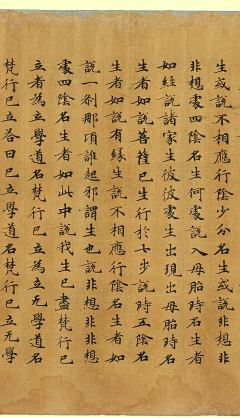 生或說不相應行陰少分名生或說非
非想處四陰名生何處說入母胎名生者
如經說諸家生彼彼處生出現出母胎時名
生者如說菩薩已生行於七步說時五陰名
生者如說有緣生說不相應行陰名生者如
說一剎那頃誰起邪謂生也說非想非非想
處四陰名生者如此中說我生已盡梵行已
立者為立學道名梵行已立為立無學道名
梵行已立答曰已立學道名梵行已立无學